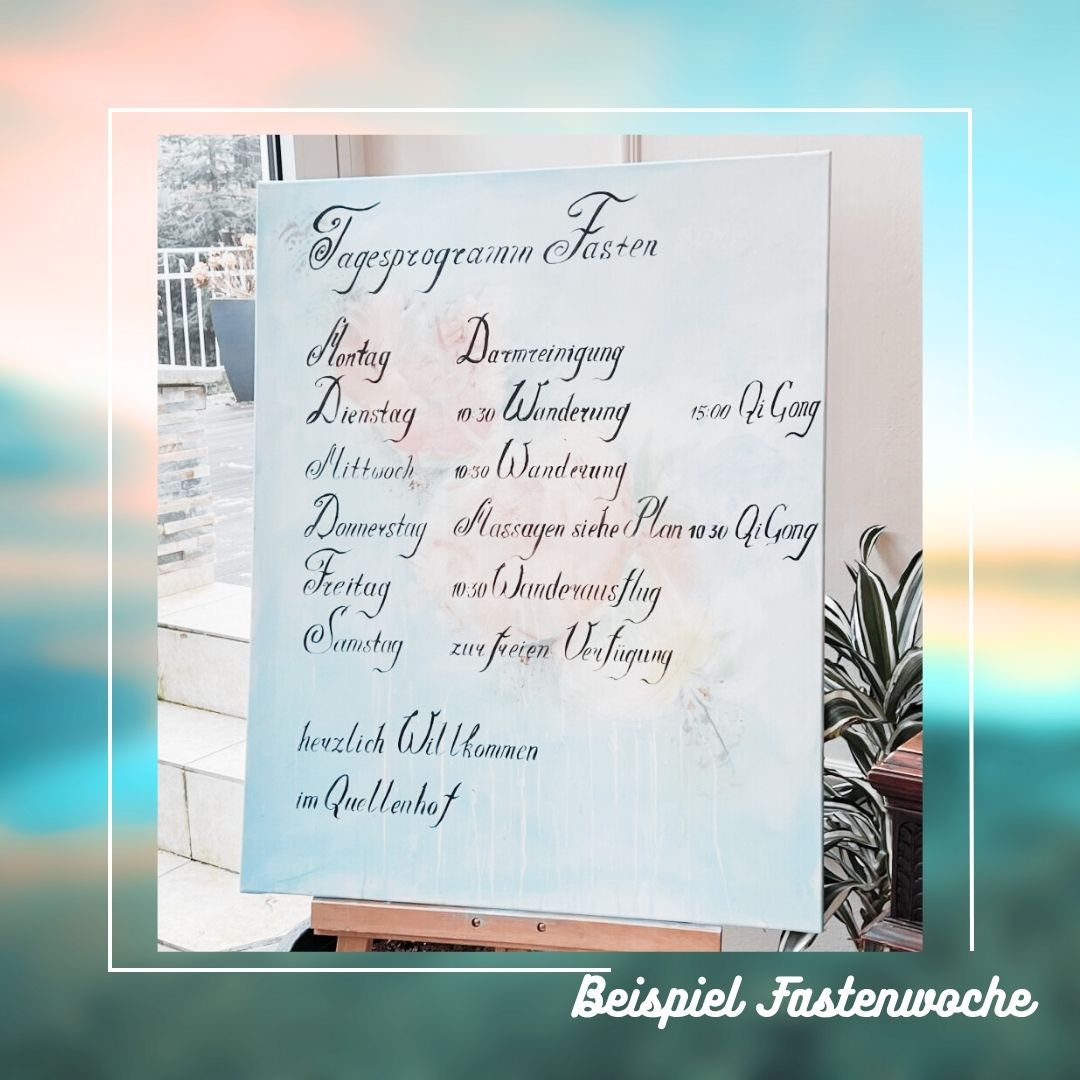 Tagesprogramm Fasten
Montag Darmreinigung
Dienstag 10:30 Wanderung 15:00 Qi Gong
Mittwoch 10:30 Wanderung
Donnerstag Massagen siehe Plan 10 30 Qi Gong
Freitag 10:30 Wanderausflug
Samstag zur freien Verfügung
herzlich Willkommen
im Quellenhof
Beispiel Fastenwoche